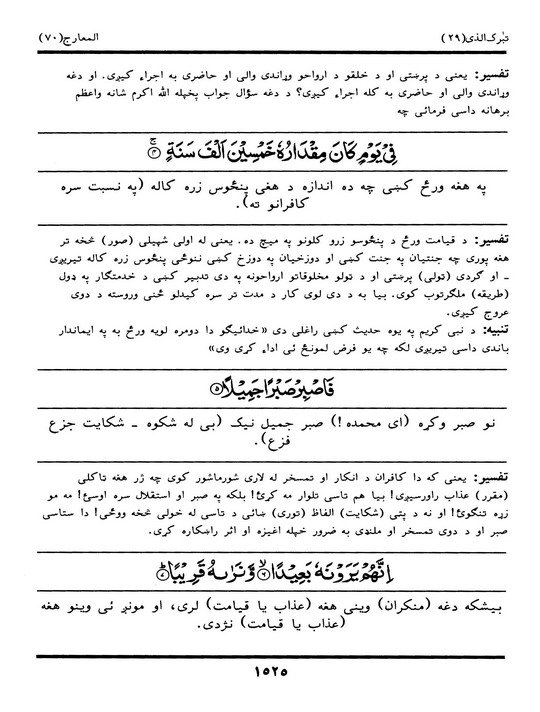 تبٰرک الذی (۲۹) المعارج (۷۰)
تفسیر: یعنی د پرښتی او د خلقو د ارواحو وړاندی والی او حاضری به اجراء کیږی. او دغه
وړاندی والی او حاضری به کله اجراء کیږی؟ د دغه سؤال جواب پخپله الله اکرم شانه واعظم
برهانه داسی فرمائی چه
فِیۡ یَوۡمٍ کَانَ مِقۡدَارُہٗ خَمۡسِیۡنَ اَلۡفَ سَنَۃٍ ۚ﴿۴﴾
په هغه ورځ کښی چه ده اندازه د هغی پنځوس زره کاله (په نسبت سره
کافرانو ته).
تفسیر: د قیامت ورځ د پنځوسو زرو کلونو په میچ ده. یعنی له اولی شپیلی (صور) څخه تر
هغه پوری چه جنتیان په جنت کښی او دوزخیان په دوزخ کښی ننوځی پنځوس زره کاله تیریږی
ـ او گردی (تولی) پرښتی او د ټولو مخلوقاتو ارواحونه په دی تدبیر کښی د خدمتگار په ډول
(طریقه) ملگرتوب کوی. بیا به د دی لوی کار د مدت تر سره کیدلو ځنی وروسته د دوی
عروج کیږی.
تنبیه: د نبی کریم په یوه حدیث کښی راغلی دی «خدائیگو دا دومره لویه ورځ به په ایماندار
باندی داسی تیریږی لکه چه یو فرض لمونځ ئی اداء کړی وی»
فَاصۡبِرۡ صَبۡرًا جَمِیۡلًا ﴿۵﴾
نو صبر وکره (ای محمده!) صبر جمیل نیک (بی له شکوه ـ شکایت جزع
فزع).
تفسیر: یعنی که دا کافران د انکار او تمسخر له لاری شورماشور کوی چه ژر هغه تاکلی
(مقرر) عذاب راورسیږی! بیا هم تاسی تلوار مه کړئ! بلکه په صبر او استقلال سره اوسئ! مه مو
زړه تنگوئ! او نه د پتی (شکایت) الفاظ (توری) ښائی د تاسی له خولی څخه ووځی! دا ستاسی
صبر او د دوی تمسخر او ملنډی به ضرور خپله اغیزه او اثر راښکاره کړی.
اِنَّہُمۡ یَرَوۡنَہٗ بَعِیۡدًا ۙ﴿۶﴾ وَّ نَرٰىہُ قَرِیۡبًا ؕ﴿۷﴾
بیشکه دغه (منکران) وینی هغه (عذاب یا قیامت) لری، او مونږ ئی وینو هغه
(عذاب یا قیامت) نژدی.
۱۵۲۵